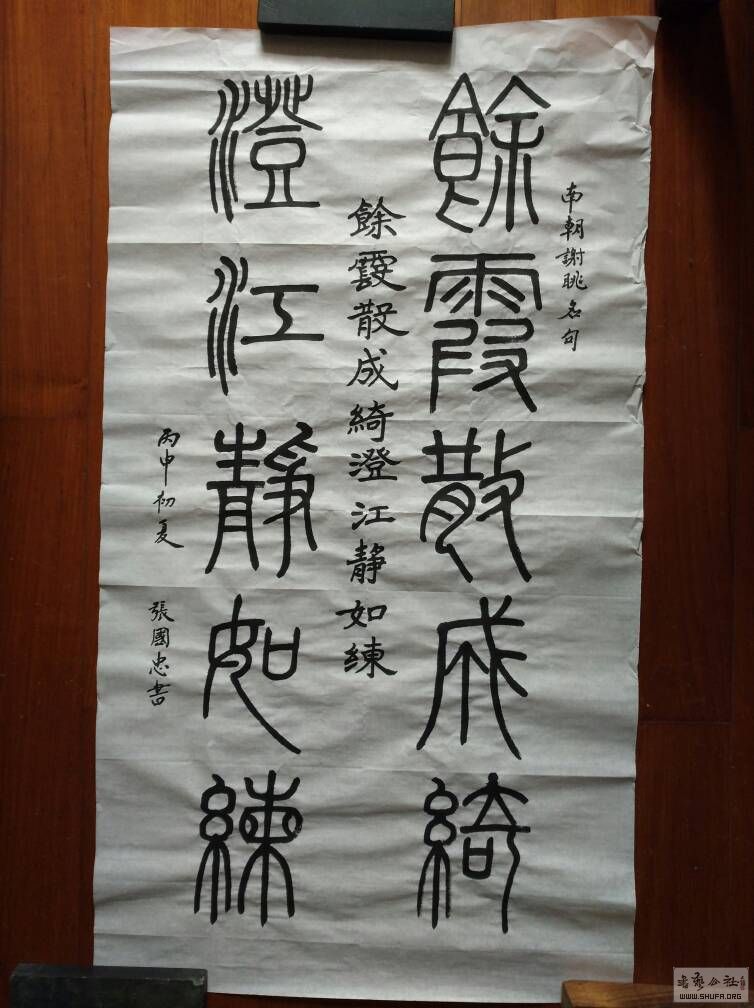 南朝謝眺名句
餘霞散成綺
餘霞散成綺澄江靜如練
澄江靜如練
丙申初夏
張國忠書
WWW.SHUFA.ORG